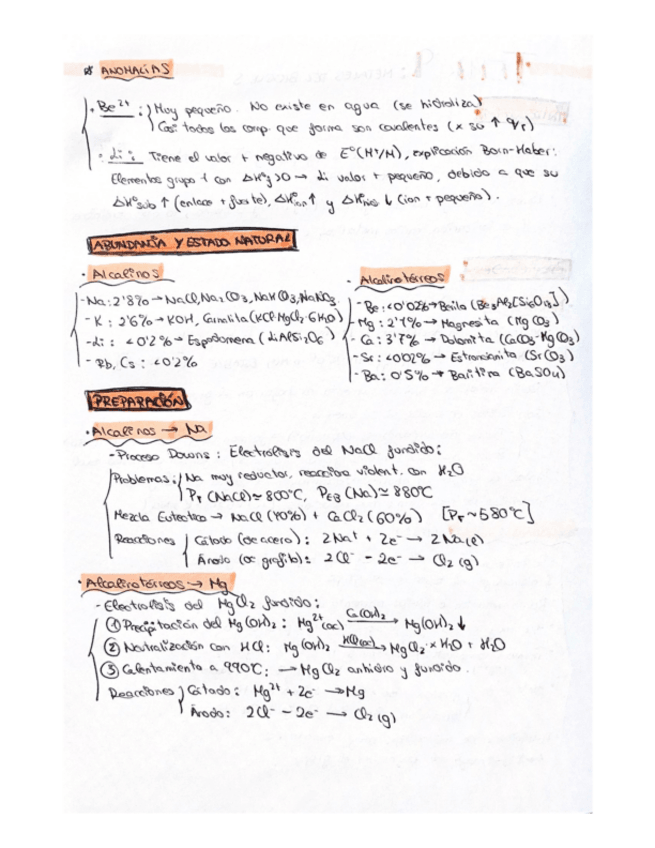 ANOMALÍAS
· Be²⁺ : Muy pequeño. No existe en agua (se hidroliza)
Casi todos los comp. que forma son covalentes (x su ↑ q/r)
· Li : Tiene el valor + negativo de E°(M⁺/M), explicación Born-Haber:
Elementos grupo 1 con ΔH° >0 → Li valor + pequeño, debido a que su
ΔH°sub ↑ (enlace + fuerte), ΔH°ion ↑ y ΔHhid ↓ (ion + pequeño).
ABUNDANCIA Y ESTADO NATURAL
· Alcalinos
- Na: 2'8% → NaCl, Na₂CO₃, NaHCO₃, NaNO₃
- K : 2'6% → KOH, Carnalita (KCl·MgCl₂·6H₂O)
- Li : <0'2% → Espodomena (LiAlSi₂O₆)
- Rb, Cs : <0'2%
· Alcalinotérreos
- Be: <0'02% → Berilo (Be₃Al₂[Si₆O₁₈])
- Mg: 2'7% → Magnesita (MgCO₃)
- Ca: 3'7% → Dolomita (CaCO₃·MgCO₃)
- Sr: <0'02% → Estroncianita (SrCO₃)
- Ba: 0'5% → Baritina (BaSO₄)
PREPARACIÓN
· Alcalinos → Na
- Proceso Downs : Electrólisis del NaCl fundido:
Problemas: Na muy reductor, reacciona violent. con H₂O
P_F (NaCl) ≃ 800°C, P_EB (Na) ≃ 880°C
Mezcla Eutéctica → NaCl (40%) + CaCl₂ (60%) [P_F ~ 580°C]
Reacciones Cátodo (de acero) : 2Na⁺ + 2e⁻ → 2Na(l)
Ánodo (de grafito) : 2Cl⁻ - 2e⁻ → Cl₂ (g)
· Alcalinotérreos → Mg
- Electrólisis del MgCl₂ fundido:
① Precipitación del Mg(OH)₂ : Mg²⁺(ac) Ca(OH)₂ → Mg(OH)₂ ↓
② Neutralización con HCl: Mg(OH)₂ HCl(ac) → MgCl₂·xH₂O + H₂O
③ Calentamiento a 990°C: → MgCl₂ anhidro y fundido.
Reacciones Cátodo: Mg²⁺ + 2e⁻ → Mg
Ánodo: 2Cl⁻ - 2e⁻ → Cl₂ (g)